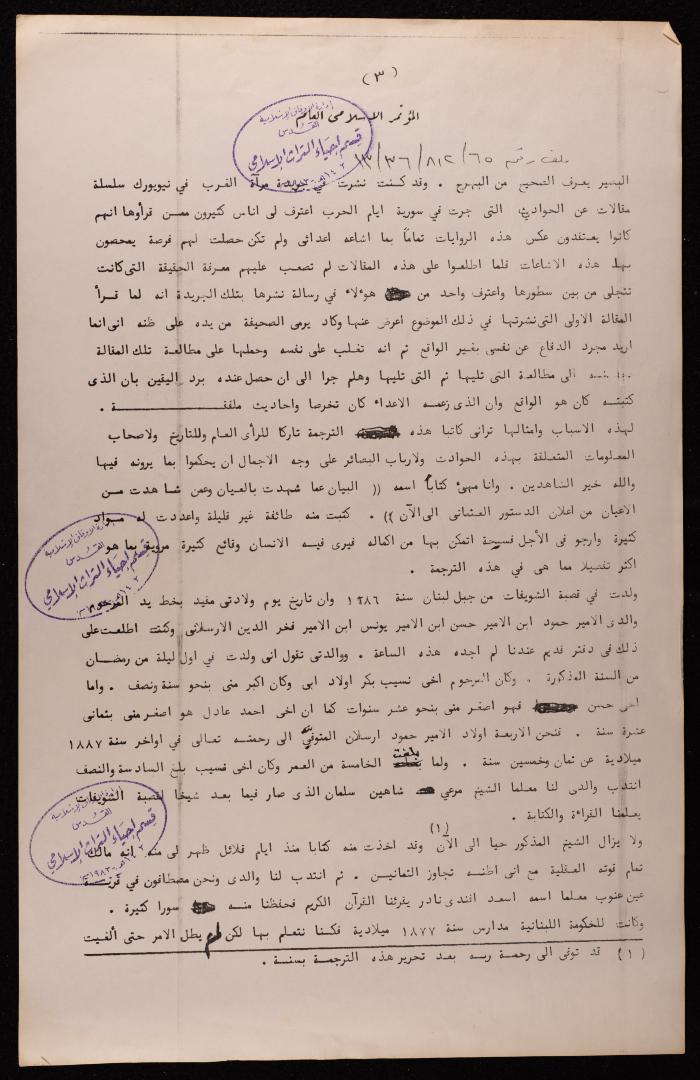 (٣)
المؤتمر الاسلامي العام
ملف رقم ١٣/٣٦/٨١٢/٦٥
ادارة الاوقاف الاسلامية
القدس
قسم احياء التراث الاسلامي
البصير يعرف الصحيح من البهرج . وقد كنت نشرت في جريدة مرآة الغرب في نيويورك سلسلة
مقالات عن الحوادث التى جرت في سورية ايام الحرب اعترف لى اناس كثيرون ممن قرأوها انهم
كانوا يعتقدون عكس هذه الروايات تماماً بما اشاعه اعدائى ولم تكن حصلت لهم فرصة يمحصون
بها هذه الاشاعات فلما اطلعوا على هذه المقالات لم تصعب عليهم معرفة الحقيقة التى كانت
تتجلى من بين سطورها واعترف واحد من هوءلاء في رسالة نشرها بتلك الجريدة انه لما قرأ
المقالة الاولى التى نشرتها في ذلك الموضوع اعرض عنها وكاد يرمى الصحيفة من يده على ظنه انى انما
اريد مجرد الدفاع عن نفسى بغير الواقع ثم انه تغلب على نفسه وحملها على مطالعة تلك المقالة
الى مطالعة التى تليها ثم التى تليها وهلم جرا الى ان حصل عنده برد اليقين بان الذى
كتبته كان هو الواقع وان الذى زعمه الاعداء كان تخرصا واحاديث ملفقة .
لهذه الاسباب وامثالها ترانى كاتبا هذه الترجمة تاركا للرأى العام وللتاريخ ولاصحاب
المعلومات المتعلقة بهذه الحوادث ولارباب البصائر على وجه الاجمال ان يحكموا بما يرونه فيها
والله خير الشاهدين . وانا مهيىء كتاباً اسمه (( البيان عما شهدت بالعيان وعمن شاهدت من
الاعيان من اعلان الدستور العثمانى الى الآن )) . كتبت منه طائفة غير قليلة واعددت له مواد
كثيرة وارجو فى الأجل فسحة اتمكن بها من اكماله فيرى فيه الانسان وقائع كثيرة مروية بما هو
اكثر تفصيلا مما هى في هذه الترجمة .
ولدت في قصبة الشويفات من جبل لبنان سنة ١٢٨٦ وان تاريخ يوم ولادتى مفيد بخط يد المرحوم
والدى الامير حمود ابن الامير حسن ابن الامير يونس ابن الامير فخر الدين الارسلانى وكنت اطلعت على
ذلك فى دفتر قديم عندنا لم اجده هذه الساعة . ووالدتى تقول انى ولدت في اول ليلة من رمضان
من السنة المذكورة . وكان المرحوم اخى نسيب بكر اولاد ابى وكان اكبر منى بنحو سنة ونصف . واما
اخى حسن فهو اصغر منى بنحو عشر سنوات كما ان اخى احمد عادل هو اصغر منى بثمانى
عشرة سنة . فنحن الاربعة اولاد الامير حمود ارسلان المتوفى الى رحمته تعالى في اواخر سنة ١٨٨٧
ميلادية عن ثمان وخمسين سنة . ولما بلغت الخامسة من العمر وكان اخى نسيب بلغ السادسة والنصف
انتدب والدى لنا معلما الشيخ مرعي شاهين سلمان الذى صار فيما بعد شيخا لقصبة الشويفات
يعلمنا القراءة والكتابة .
ولا يزال الشيخ المذكور حيا الى الآن (١) وقد اخذت منه كتابا منذ ايام قلائل ظهر لى منه انه مالك
تمام قوته العقلية مع انى اظنه تجاوز الثمانين . ثم انتدب لنا والدى ونحن مصطافون في قرية
عين عنوب معلما اسمه اسعد افندى نادر يقرئنا القرآن الكريم فحفظنا منه سورا كثيرة .
وكانت للحكومة اللبنانية مدارس سنة ١٨٧٧ ميلادية فكنا نتعلم بها لكن لم يطل الامر حتى ألغيت
(١) قد توفى الى رحمة ربه بعد تحرير هذه الترجمة بسنة .
ادارة الاوقاف الاسلامية
القدس
قسم احياء التراث الاسلامي
ادارة الاوقاف الاسلامية
القدس
قسم احياء التراث الاسلامي
١٤٠٢هـ-١٩٨٣م